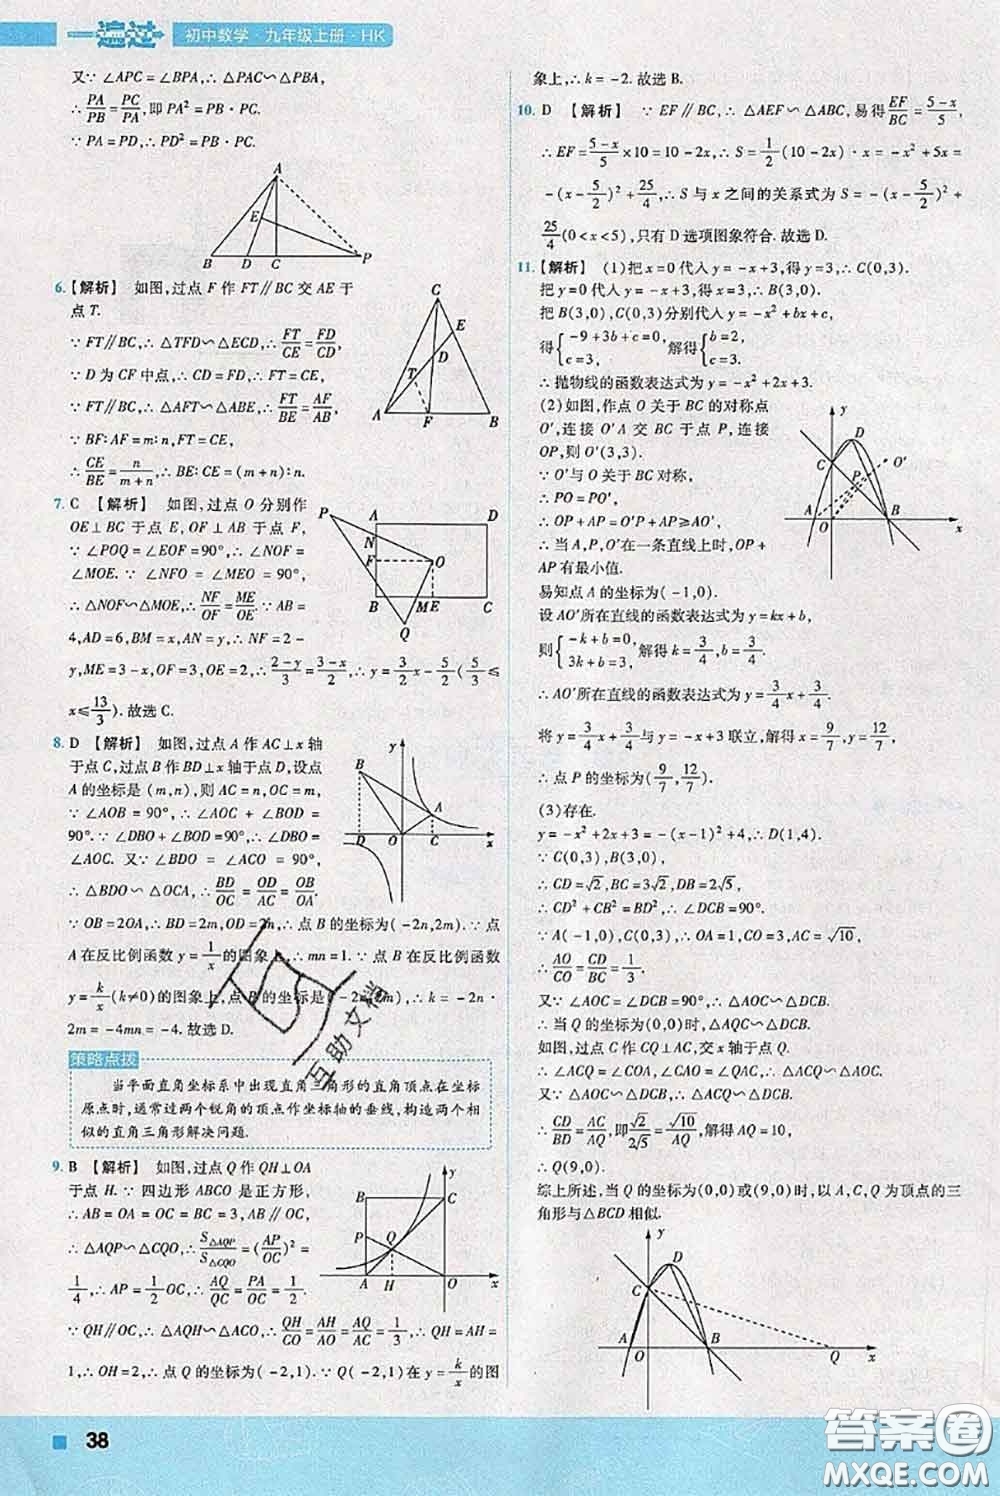 一遍过 初中数学·九年级上册·HK
又∵∠APC=∠BPA,∴△PAC∽△PBA,
∴PA/PB=PC/PA,即PA²=PB·PC.
∵PA=PD,∴PD²=PB·PC.
A
E
B D C P
6.【解析】 如图,过点F作FT∥BC交AE于
点T.
∵FT∥BC,∴△TFD∽△ECD,∴FT/CE=FD/CD.
∵D为CF中点,∴CD=FD,∴FT=CE.
∵FT∥BC,∴△AFT∽△ABE,∴FT/BE=AF/AB.
∵BF:AF=m:n,FT=CE,
∴CE/BE=n/(m+n),∴BE:CE=(m+n):n.
C
E
D
T
A F B
7. C 【解析】 如图,过点O分别作
OE⊥BC于点E,OF⊥AB于点F,
∵∠POQ=∠EOF=90°,∴∠NOF=
∠MOE.∵∠NFO=∠MEO=90°,
∴△NOF∽△MOE,∴NF/OF=ME/OE.∵AB=
4,AD=6,BM=x,AN=y,∴NF=2-
y,ME=3-x,OF=3,OE=2,∴(2-y)/3=(3-x)/2,∴y=3/2x-5/2(5/3≤
x≤13/3).故选C.
P A D
N
F O
B M E C
Q
8. D 【解析】 如图,过点A作AC⊥x轴
于点C,过点B作BD⊥x轴于点D,设点
A的坐标是(m,n),则AC=n,OC=m.
∵∠AOB=90°,∴∠AOC+∠BOD=
90°.∵∠DBO+∠BOD=90°,∴∠DBO=
∠AOC.又∵∠BDO=∠ACO=90°,
∴△BDO∽△OCA,∴BD/OC=OD/AC=OB/OA.
∵OB=2OA,∴BD=2m,OD=2n,∴点B的坐标为(-2n,2m).∵点
A在反比例函数y=1/x的图象上,∴mn=1.∵点B在反比例函数
y=k/x(k≠0)的图象上,点B的坐标是(-2n,2m),∴k=-2n·
2m=-4mn=-4.故选D.
y
B
A
D O C x
策略点拨
当平面直角坐标系中出现直角三角形的直角顶点在坐标
原点时,通常过两个锐角的顶点作坐标轴的垂线,构造两个相
似的直角三角形解决问题.
9. B 【解析】 如图,过点Q作QH⊥OA
于点H.∵四边形ABCO是正方形,
∴AB=OA=OC=BC=3,AB∥OC,
∴△AQP∽△CQO,∴S△AQP/S△CQO=(AP/OC)²=
1/4,∴AP=1/2OC,∴AQ/QC=PA/OC=1/2.
∵QH∥OC,∴△AQH∽△ACO,∴QH/CO=AH/AO=AQ/AC=1/3,∴QH=AH=
1,∴OH=2,∴点Q的坐标为(-2,1).∵Q(-2,1)在y=k/x的图
y
B C
P Q
A H O x
象上,∴k=-2.故选B.
10. D 【解析】 ∵EF∥BC,∴△AEF∽△ABC,易得EF/BC=(5-x)/5,
∴EF=(5-x)/5×10=10-2x,∴S=1/2(10-2x)·x=-x²+5x=
-(x-5/2)²+25/4,∴S与x之间的关系式为S=-(x-5/2)²+
25/4(0<x<5),只有D选项图象符合.故选D.
11.【解析】 (1)把x=0代入y=-x+3,得y=3,∴C(0,3).
把y=0代入y=-x+3,得x=3,∴B(3,0).
把B(3,0),C(0,3)分别代入y=-x²+bx+c,
得{-9+3b+c=0, c=3, 解得{b=2, c=3.
∴抛物线的函数表达式为y=-x²+2x+3.
(2)如图,作点O关于BC的对称点
O′,连接O′A交BC于点P,连接
OP,则O′(3,3).
∵O′与O关于BC对称,
∴PO=PO′,
∴OP+AP=O′P+AP≥AO′,
∴当A,P,O′在一条直线上时,OP+
AP有最小值.
易知点A的坐标为(-1,0).
设AO′所在直线的函数表达式为y=kx+b,
则{-k+b=0, 3k+b=3, 解得k=3/4,b=3/4,
∴AO′所在直线的函数表达式为y=3/4x+3/4.
将y=3/4x+3/4与y=-x+3联立,解得x=9/7,y=12/7,
∴点P的坐标为(9/7,12/7).
y
D
C O′
P
A O B x
(3)存在.
y=-x²+2x+3=-(x-1)²+4,∴D(1,4).
∵C(0,3),B(3,0),
∴CD=√2,BC=3√2,DB=2√5,
∴CD²+CB²=DB²,∴∠DCB=90°.
∵A(-1,0),C(0,3),∴OA=1,CO=3,AC=√10,
∴AO/CO=CD/BC=1/3.
又∵∠AOC=∠DCB=90°,∴△AOC∽△DCB.
∴当Q的坐标为(0,0)时,△AQC∽△DCB.
如图,过点C作CQ⊥AC,交x轴于点Q.
∴∠ACQ=∠COA,∠CAQ=∠OAC,
又∵△AOC∽△DCB,∴△ACQ∽△DCB,
∴CD/BD=AC/AQ,即√2/2√5=√10/AQ,解得AQ=10,
∴Q(9,0).
综上所述,当Q的坐标为(0,0)或(9,0)时,以A,C,Q为顶点的三
角形与△BCD相似.
y
D
C
A O B Q x
38
互助文档
答案圈
MXQE.COM